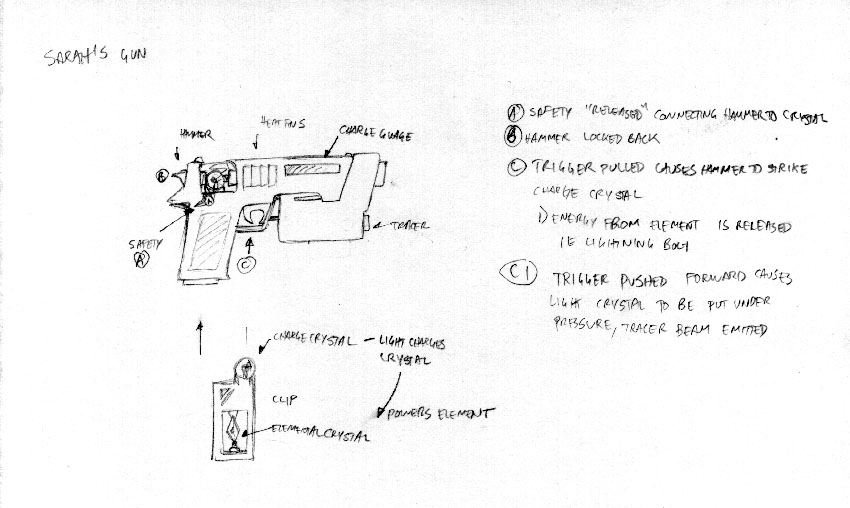 SARAH'S GUN
HAMMER
HEAT FINS
CHARGE GUAGE
B
SAFETY
A
C
TRACER
CHARGE CRYSTAL – LIGHT CHARGES
CRYSTAL
CLIP
POWERS ELEMENT
ELEMENTAL CRYSTAL
A SAFETY "RELEASED" CONNECTING HAMMER TO CRYSTAL
B HAMMER LOCKED BACK
C TRIGGER PULLED CAUSES HAMMER TO STRIKE
CHARGE CRYSTAL
1) ENERGY FROM ELEMENT IS RELEASED
IE LIGHTNING BOLT
C1 TRIGGER PUSHED FORWARD CAUSES
LIGHT CRYSTAL TO BE PUT UNDER
PRESSURE, TRACER BEAM EMITTED